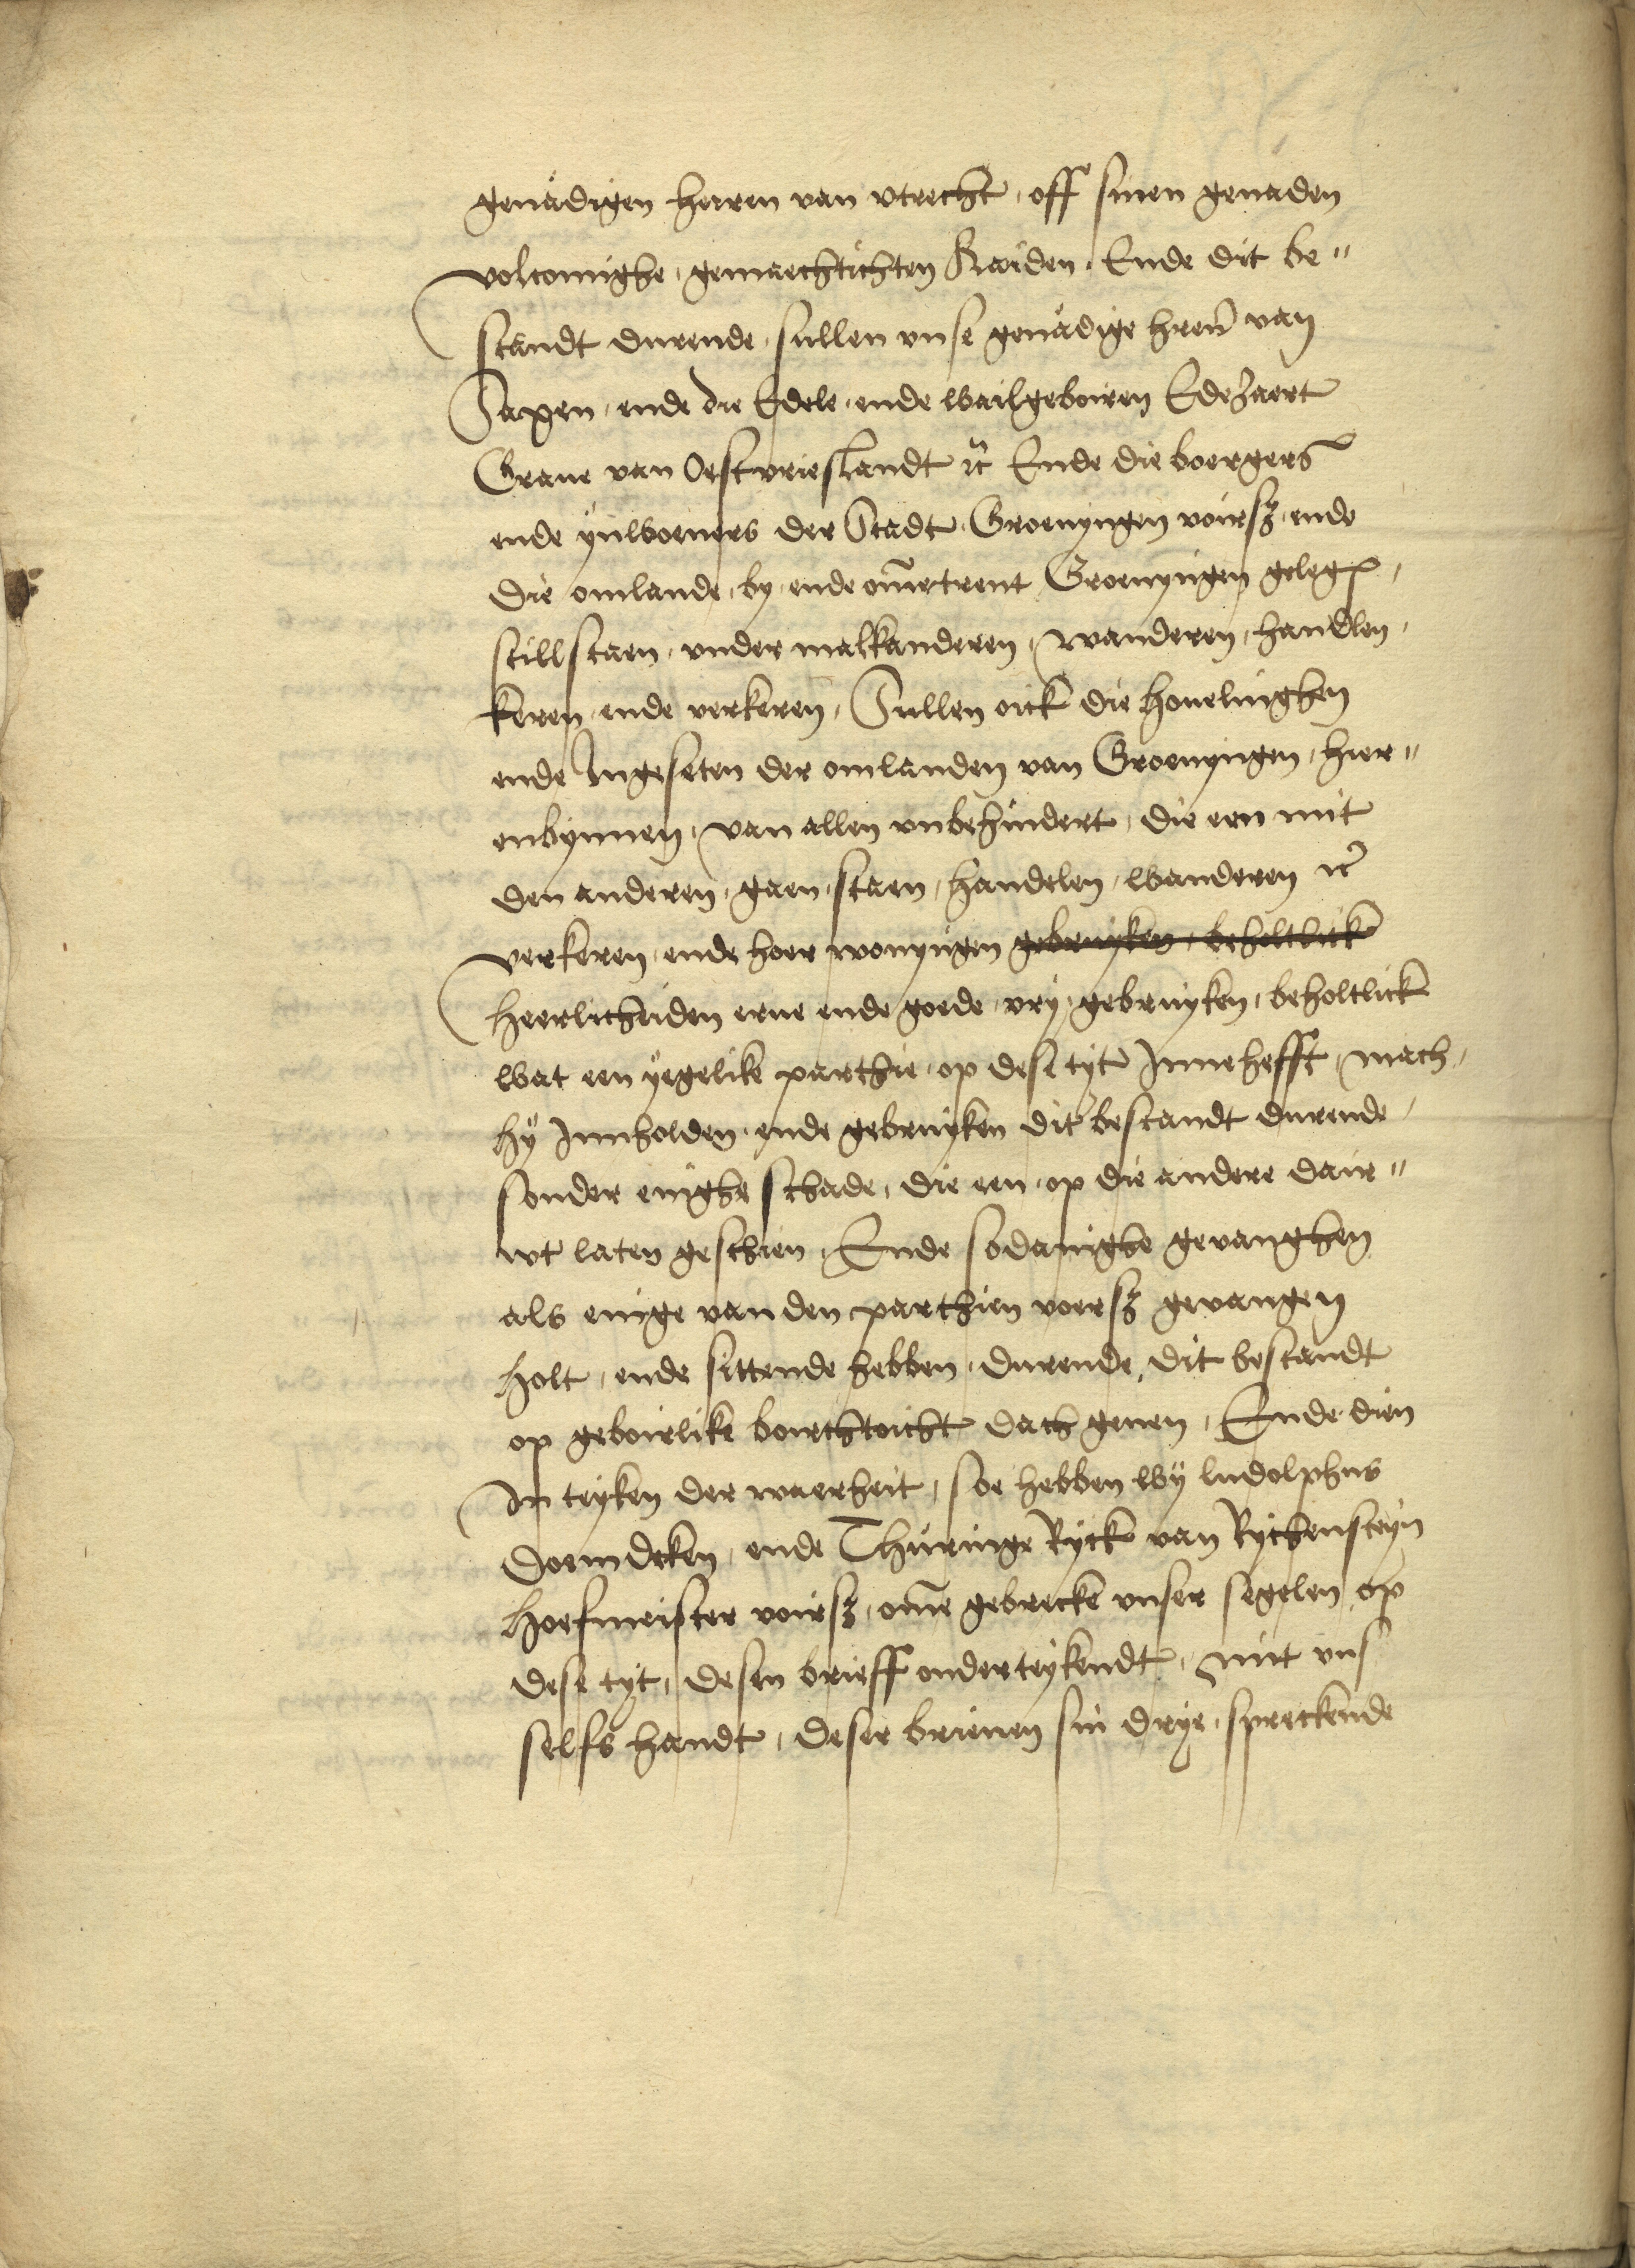 genadigen heren van vtrecht, off sinen genaden
volcomighe, gemaechtichten Raiden. Ende dit be"
standt durende, sullen vnse genadige hren van
Saxen, ende die Edele, ende wailgeboiren Edezaert
Graue van Oestvrieslandt etc Ende die boergers
ende ynwoeners der Stadt Groenyngen voirsz ende
die omlande, by ende ommetrent Groenyngen geleg
stillstaen, vnder malkanderen, wanderen, handlen,
keren ende verkeren, Sullen oick die houelinghen
ende Ingeseten der omlanden van Groenyngen, hier"
enbynnen, van allen vnbehindert, die een mit
den anderen, gaen, staen, handelen, wanderen etc
verkeren, ende hoer wonyngen gebruyken, beholtlick
heerlicheiden erue ende goede, vry, gebruyken, beholtlick
wat een yegelike parthie, op dese tyt Innehefft, mach,
hy Innholden, ende gebruyken dit bestandt durende,
sonder enighe schade, die een, op die andere dair"
wt laten geschien, Ende sodanighe gevanghen
als enige van den parthien voersz gevangen
holt, ende sittende hebben, durende, dit bestandt
op geboirlike boirchtoicht dach geuen, Ende dien
In teyken der waerheit, soe hebben wy ludolphus
doemdeken, ende Thuringe Ryck van Rychensteyn
hoefmeister voirsz, omme gebrecke vnser segelen op
dese tyt, desen brieff onderteykendt, mit vns
selfs handt, deser brieuen sin drye, spreckende